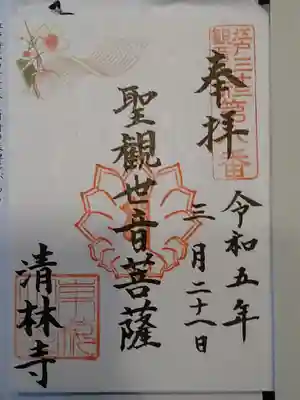 奉拝
令和五年
三月二十一日
聖觀世音菩薩
清林寺